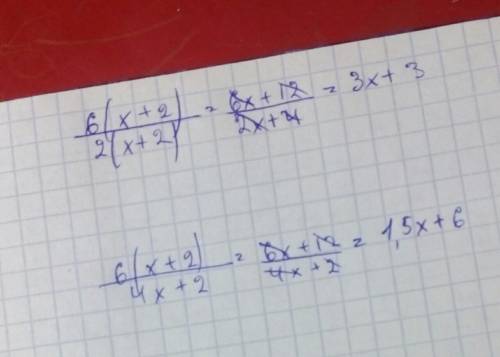 6(x+2)/2(x+2) = 6x+12/2x+4 = 3x+3
6(x+2)/4x+2 = 6x+12/4x+2 = 1,5x+6